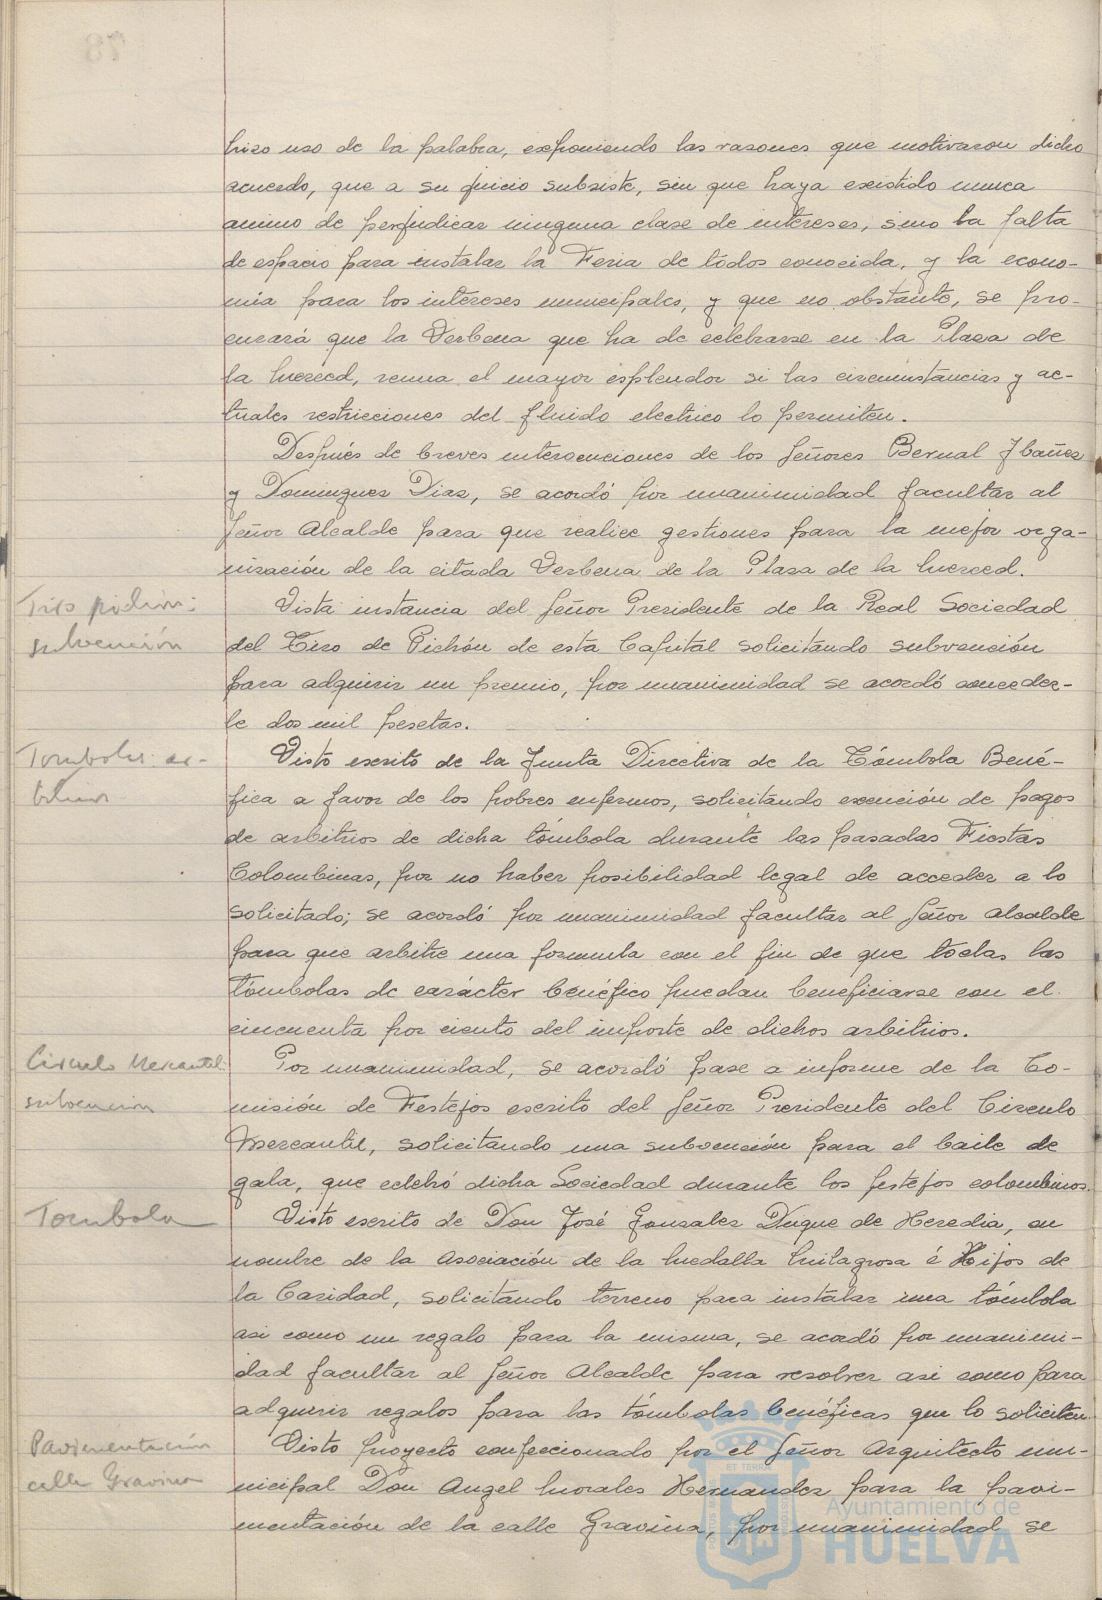 hizo uso de la palabra, exponiendo las razones que motivaron dicho
acuerdo, que a su juicio subsiste, sin que haya existido nunca
animo de perjudicar ninguna clase de intereses, sino la falta
de espacio para instalar la Feria de todos conocida, y la econo-
mia para los intereses municipales, y que no obstante, se pro-
curará que la Verbena que ha de celebrarse en la Plaza de
la Merced, reuna el mayor esplendor si las circunstancias y ac-
tuales restricciones del fluido electrico lo permiten.
Después de breves intervenciones de los Señores Bernal Ybañez
y Dominguez Diaz, se acordó por unanimidad facultar al
Señor Alcalde para que realice gestiones para la mejor orga-
nización de la citada Verbena de la Plaza de la Merced.
Tiro pichón:
subvención
Vista instancia del Señor Presidente de la Real Sociedad
del Tiro de Pichón de esta Capital solicitando subvención
para adquirir un premio, por unanimidad se acordó conceder-
le dos mil pesetas.
Tombola: ar-
bitrios
Visto escrito de la Junta Directiva de la Tómbola Bené-
fica a favor de los pobres enfermos, solicitando exención de pagos
de arbitrios de dicha tómbola durante las pasadas Fiestas
Colombinas, por no haber posibilidad legal de acceder a lo
solicitado; se acordó por unanimidad facultar al Señor Alcalde
para que arbitre una formula con el fin de que todas las
tómbolas de carácter benéfico puedan beneficiarse con el
cincuenta por ciento del importe de dichos arbitrios.
Circulo Mercantil
subvencion
Por unanimidad, se acordó pase a informe de la Co-
misión de Festejos escrito del Señor Presidente del Circulo
Mercantil, solicitando una subvención para el baile de
gala, que celebró dicha Sociedad durante los festejos colombinos.
Tombola
Visto escrito de Don José Gonzalez Duque de Heredia, en
nombre de la Asociación de la Medalla Milagrosa é Hijos de
la Caridad, solicitando terreno para instalar una tómbola
asi como un regalo para la misma, se acordó por unanimi-
dad facultar al Señor Alcalde para resolver asi como para
adquirir regalos para las tómbolas benéficas que lo soliciten
Pavimentación
calle Gravina
Visto proyecto confeccionado por el Señor Arquitecto mu-
nicipal Don Angel Morales Hernandez para la pavi-
mentación de la calle Gravina, por unanimidad se
Ayuntamiento de
HUELVA